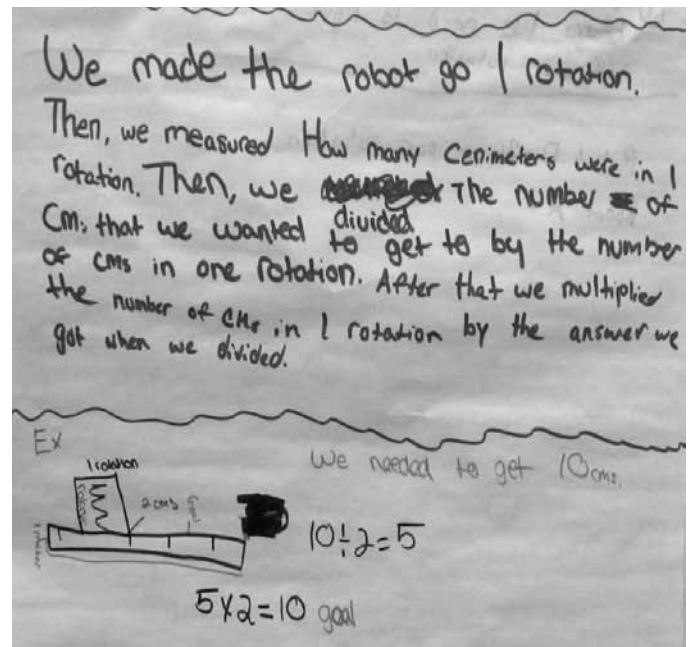 We made the robot go 1 rotation.
Then, we measured How many Cenimeters were in 1
rotation. Then, we divided The number of
Cms that we wanted to get to by the number
of cms in one rotation. After that we multiplied
the number of CMs in 1 rotation by the answer we
got when we divided.
Ex
We needed to get 10cms.
1 rotation
2 cms
Goal
10÷2=5
5x2=10 goal